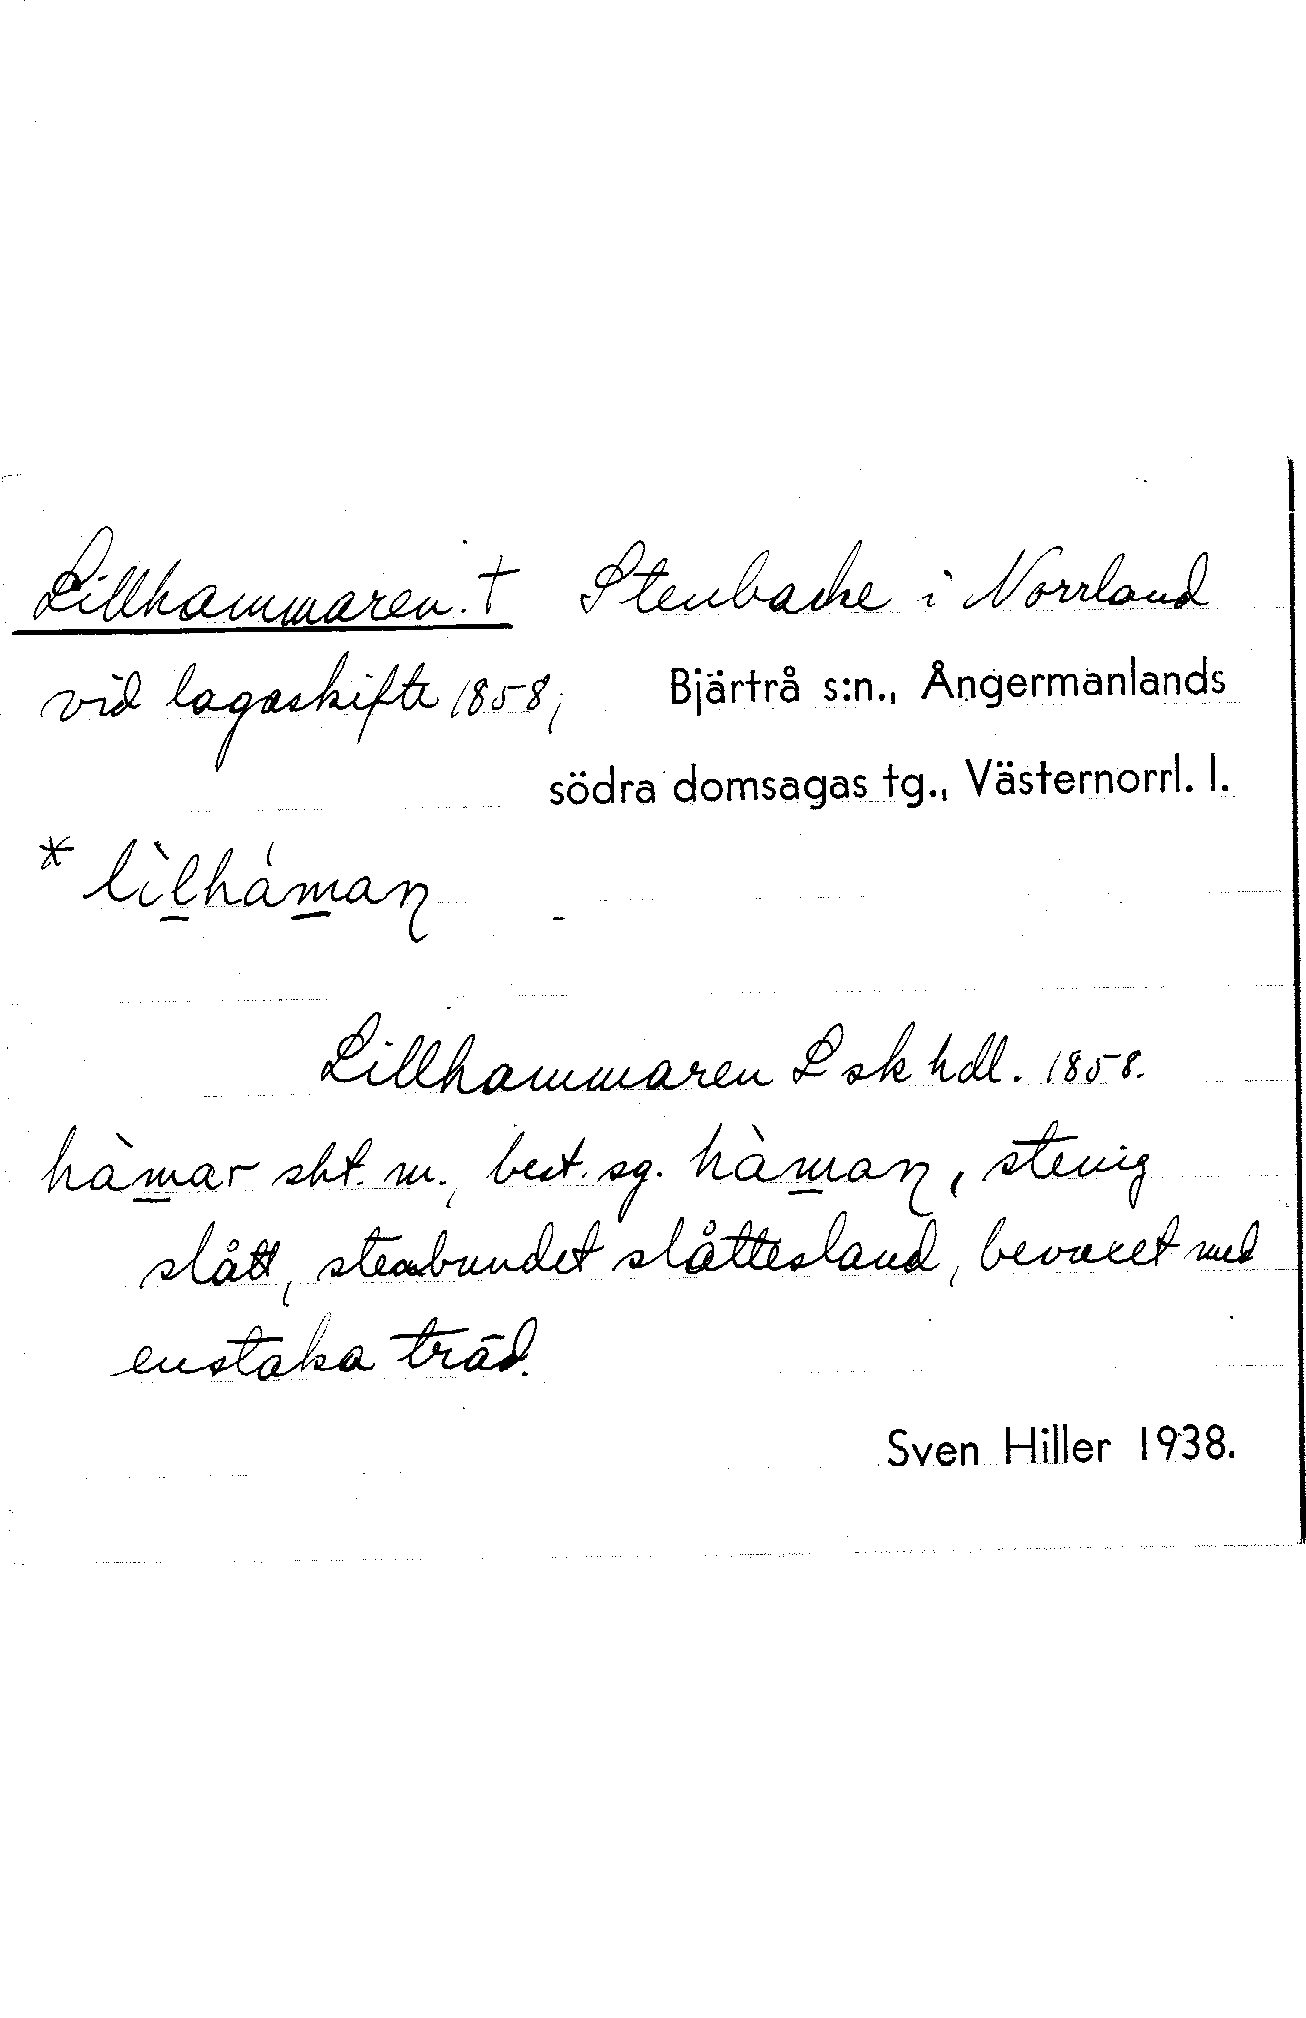 Lillhammaren. † Stenbacke i Norrland
vid lagaskifte 1858, Bjärtrå s:n., Ångermanlands
södra domsagas tg., Västernorrl. l.
* lìlháman
Lillhammaren L sk hdl. 1858.
hàmar sbt. m., best. sg. hàman, stenig
slått, stenbundet slåttesland, bevuxet med
enstaka träd.
Sven Hiller 1938.